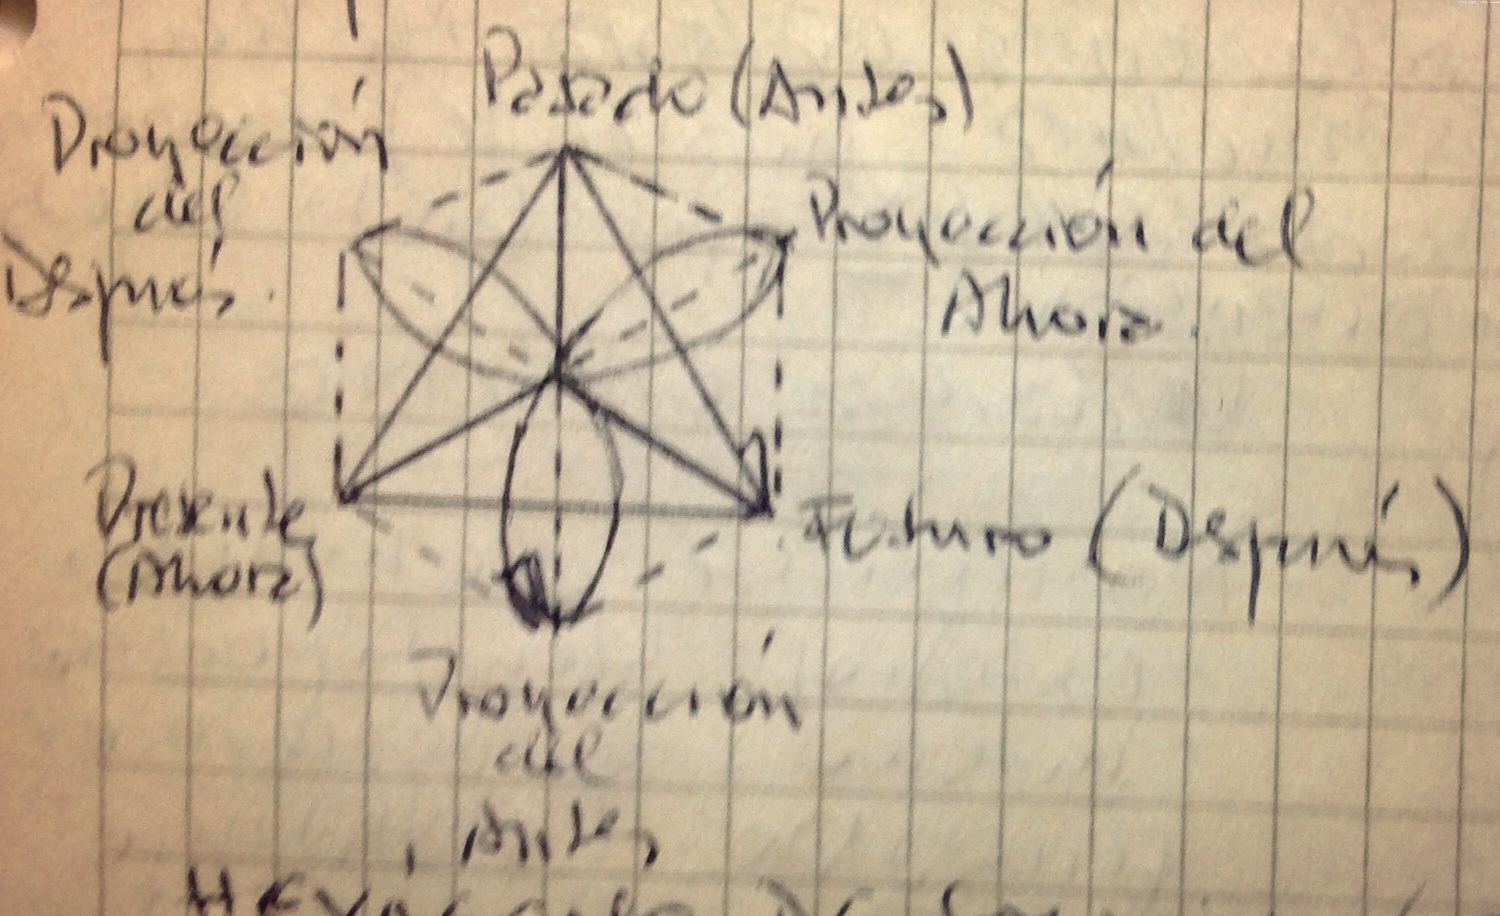 Pasado (Antes)
Proyección
del
Después.
Proyección del
Ahora.
Presente
(Ahora)
Futuro (Después)
Proyección
del
Antes